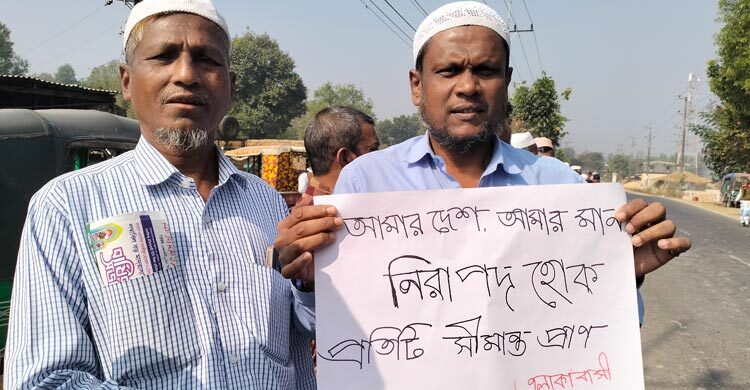 আমার দেশ, আমার মান
নিরাপদ হোক
প্রতিটি সীমান্ত প্রাণ
এলাকাবাসী